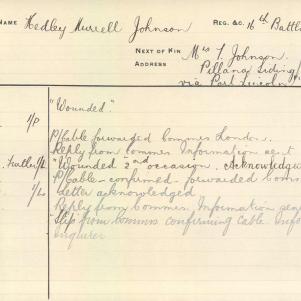 NAME Hedley Murrell Johnson REG. &C. 16th Battln
NEXT OF KIN Mrs T. Johnson.
ADDRESS Pillana Siding
via Port Lincoln
"Wounded"
P/Cable forwarded Commrs London.
Reply from Commrs. Information sent
"Wounded" 2nd occasion. Acknowledged
P/Cable - confirmed - forwarded Comms
Letter acknowledged
Reply from Commrs. Information
Slip from Comms confirming Cable. Info
enquirer